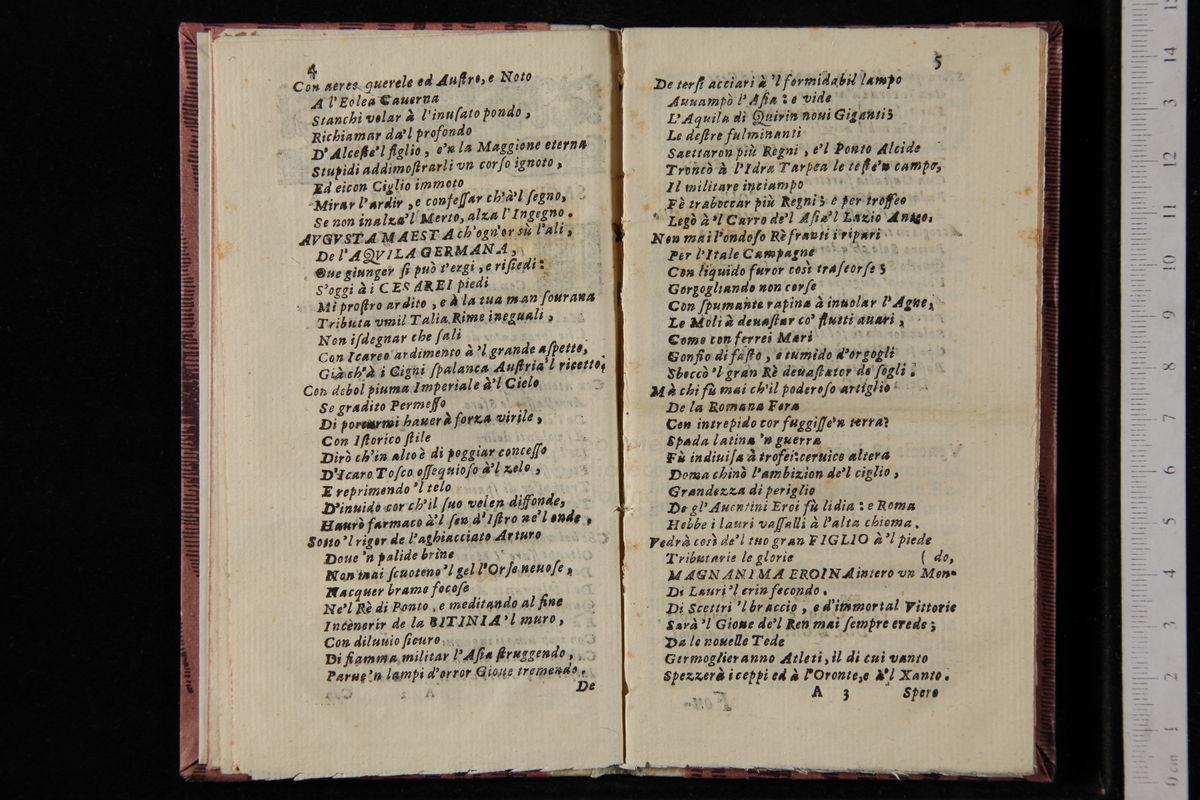 4
Con aeree querele ed Auſtro, e Noto
A l'Eolea Cauerna
Stanchi volar à l'inuſato pondo,
Richiamar da'l profondo
D'Alceſte'l figlio, e'n la Maggione eterna
Stupidi addimoſtrarli vn corſo ignoto,
Ed eicon Ciglio immoto
Mirar l'ardir, e confeſſar ch'à'l ſegno,
Se non inalza'l Merto, alza l'Ingegno.
AVGVSTA MAESTA ch'ogn'or sù l'ali,
De l'AQVILA GERMANA,
Oue giunger ſi può t'ergi, e riſiedi:
S'oggi à i CESAREI piedi
Mi proſtro ardito, e à la tua man ſourana
Tributa vmil Talia Rime ineguali,
Non iſdegnar che ſali
Con Icareo ardimento à'l grande aſpetto,
Già ch'à i Cigni ſpalanca Auſtria'l ricetto.
Con debol piuma Imperiale à'l Cielo
Se gradito Permeſſo
Di portarmi hauerà forza virile,
Con Iſtorico ſtile
Dirò ch'in alto è di poggiar conceſſo
D'Icaro Toſco oſſequioſo à'l zelo,
E reprimendo'l telo
D'inuido cor ch'il ſuo velen diffonde,
Haurò farmaco à'l ſen d'Iſtro ne'l onde.
Sotto'l rigor de l'aghiacciato Arturo
Doue'n palide brine
Non mai ſcuoteno'l gel l'Orſe neuoſe,
Nacquer brame focoſe
Ne'l Rè di Ponto, e meditando al fine
Incenerir de la BITINIA'l muro,
Con diluuio ſicuro
Di fiamma militar l'Aſia ſtruggendo,
Parue'n lampi d'orror Gioue tremendo.
De
5
De terſi acciari à'l formidabil lampo
Auuampò l'Aſia: e vide
L'Aquila di Quirin noui Giganti;
Le deſtre fulminanti
Saettaron più Regni, e'l Ponto Alcide
Troncò à l'Idra Tarpea le teſte'n campo,
Il militare inciampo
Fè traboccar più Regni; e per troffeo
Legò à'l Carro de'l Aſia'l Lazio Anteo.
Non mai l'ondoſo Rè franti i ripari
Per l'Itale Campagne
Con liquido furor così traſcorſe;
Gorgogliando non corſe
Con ſpumante rapina à inuolar l'Agne,
Le Moli à deuaſtar co' flutti auari,
Come con ferrei Mari
Gonfio di faſto, e tumido d'orgogli
Sboccò'l gran Rè deuaſtator de ſogli.
Mà chi fù mai ch'il poderoſo artiglio
De la Romana Fera
Con intrepido cor fuggiſſe'n terra?
Spada latina'n guerra
Fù indiuiſa à trofei: ceruice altera
Doma chinò l'ambizion de'l ciglio,
Grandezza di periglio
De gl'Auentini Eroi fù lidia: e Roma
Hebbe i lauri vaſſalli à l'alta chioma.
Vedrà così de'l tuo gran FIGLIO à'l piede
Tributarie le glorie ( do,
MAGNANIMA EROINA intero vn Mon-
Di Lauri'l crin fecondo.
Di Scettri'l braccio, e d'immortal Vittorie
Sarà'l Gioue de'l Ren mai ſempre erede;
Da le nouelle Tede
Germoglieranno Atleti, il di cui vanto
Spezzerà i ceppi ed à l'Oronte, e à'l Xanto.
A 3 Spero
0 cm 1 2 3 4 5 6 7 8 9 10 11 12 13 14 15